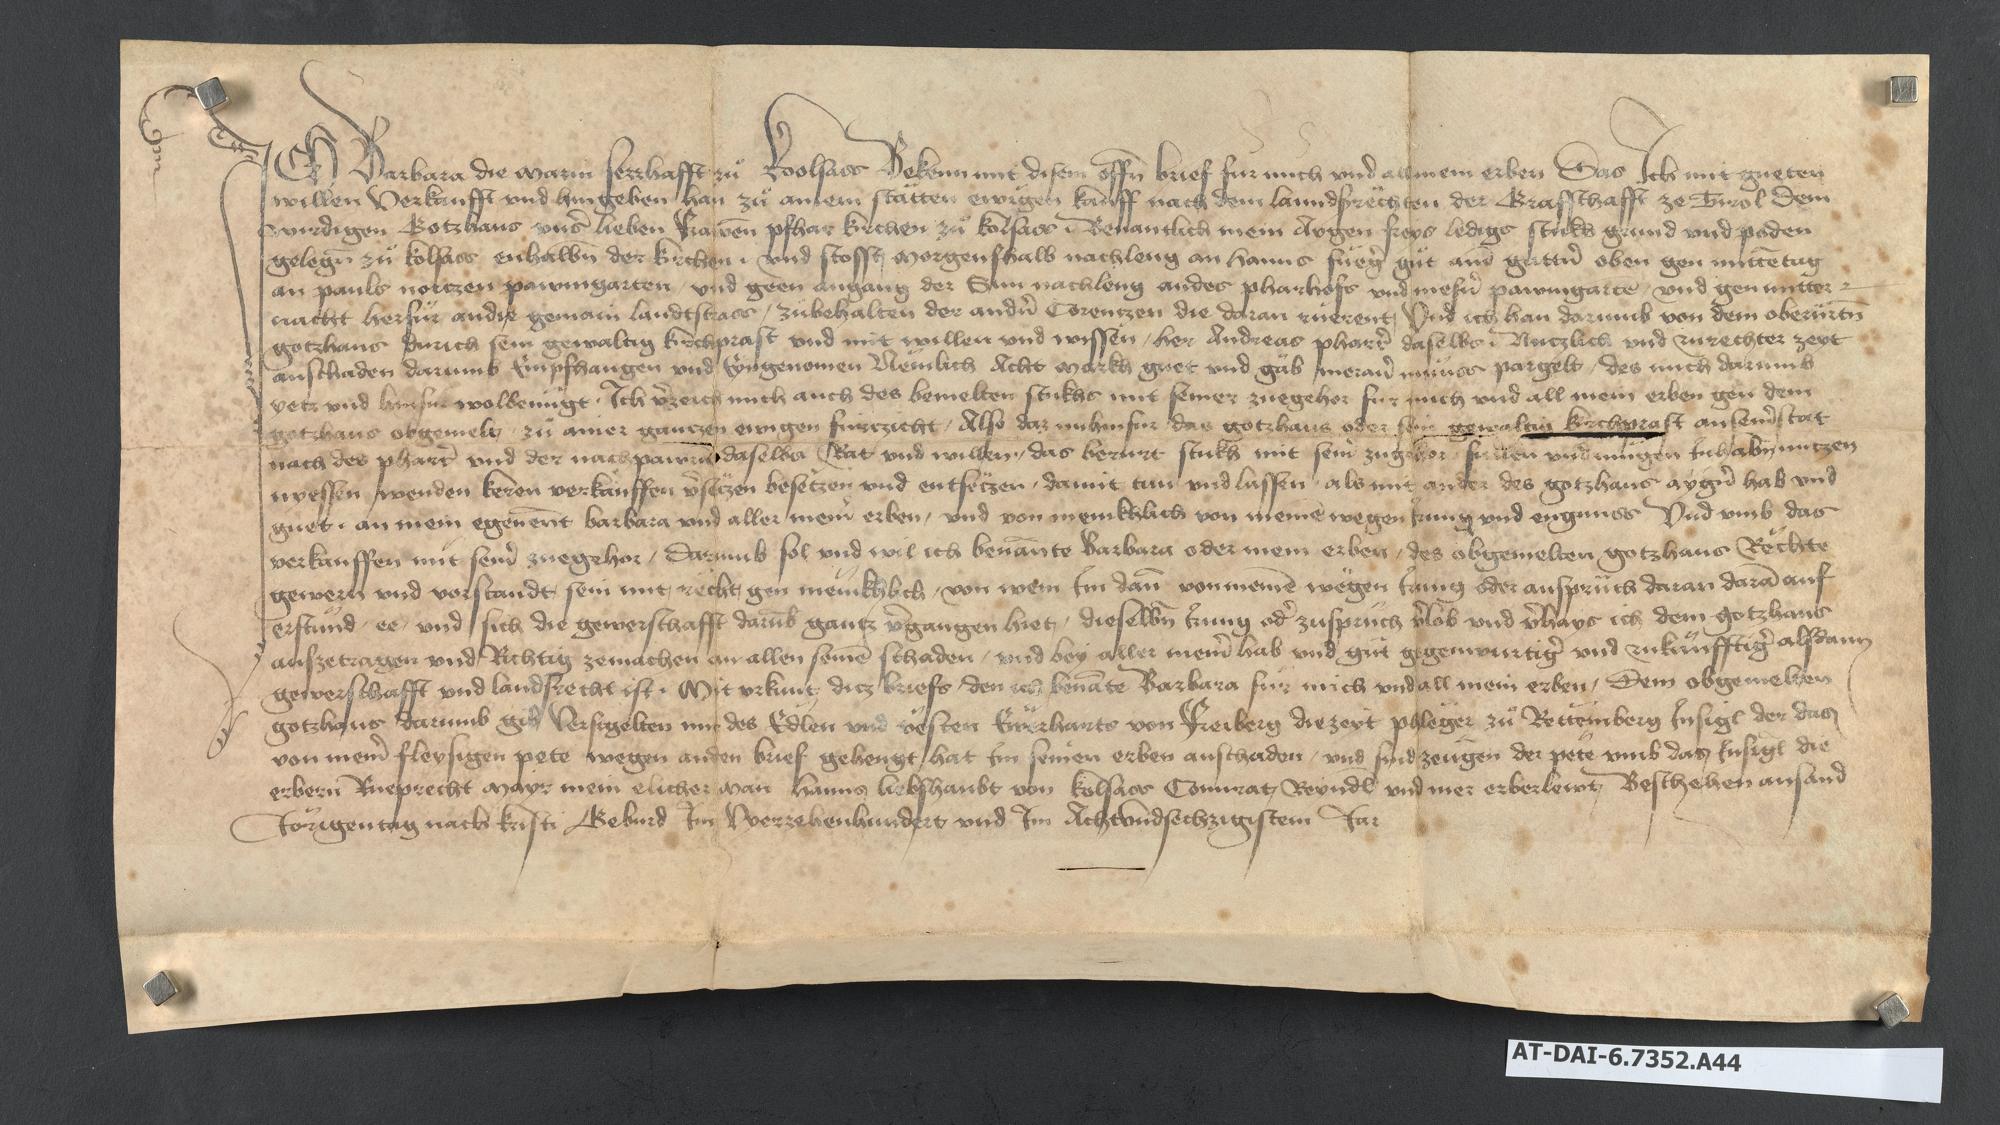 ICH Barbara die marin sezzhafft zů Koolsass Bekenn mit disem offn brief fur mich und all mein erben Das Ich mit gueten
willen Verkaufft und hingeben han zů ainem státten ewigen kauff nach dem lanndsrechten der Graffschafft ze Tirol Dem
wirdigen Gotzhaus unsr lieben Frawen pfhar kirchen zů kolsass Benantlich mein Aygen freys ledigs stukh grund und poden
gelegn zů kolsass enhalbn der kirchen und stosst morgenshalb nachleng an Hanns gůt oben gen mittetag
an pauls pawmgarten und geen angang der Sun nachleng an des pharhofs und mesnr pawmgarte und gen mitter
nacht herfür an die gemain landtstrass zubehalten der andn Corentzen die daran ruerent Und ich han darumb von dem oberürtn
gotzhaus durich sein gewaltig kirchprast und mit willen und wissen her Andreas pharrer daselbs Nutzlich und zurechter zeyt
anschaden darumb Empfhangen und Eyngenomen Nemlich Acht markh guet und gäb meranr múnss pargelt des mich darumb
yetz und hinfur wolbenügt Ich vrzeich mich auch des bemelten stukhs mit seiner zuegehor fur mich und all mein erben gen dem
gotzhaus obgemelt zů ainer gantzen ewigen fürtzicht Also daz nuhinfur das gotzhaus oder sein gewaltig kirchprast an seinr stat
nach des pharrer und der nachpawrn daselbs Rat und willen das berurt stukh mit seinr zugehor sullen und mügen Inhabn nutzen
nyessen wenden keren verkauffen vrsetzen besetzen und entsetzen damit tun und lassen als mit ander des gotzhaus aygn hab und
guet an mein egenent barbara und aller meinr erben und von menikhlich von meinē wegen Irung und engnuss Und umb das
verkauffen mit seinr zuegehor Darumb sol und wil ich benante Barbara oder mein erben des obgemelten gotzhaus Rechte
gewern und vorstandt sein mit recht gen menikhlich von wem Im dan von meinē wegen Irung oder anspruch daran darā auf
erstund ee und sich die gewerschafft darüb gantz vrgangen hiet dieselbn Irung odr zuspruch vrlob und vrhays ich dem gotzhaus
auszetragen und Richtig zemachen an allen seinē schaden und bey aller meinr hab und gůt gegenwurtigr und zukünfftigr alsdann
gewerschafft und landsrecht ist Mit urkunt dicz briefs den ich benāte Barbara für mich und all mein erben Dem obgemelten
gotzhaus darumb gib Versigelten mit des Edlen und vesten Ewerharts von Freiberg die zeyt phleger zů Rettemberg Insigl der daz
von meinr fleysigen pete wegen an den brief gehengt hat Im seinen erben anschaden und sind zeugen der pete umb daz Insigl die
erbern Rueprecht mayr mein elicher man Hanns liebshaubt von kolsass Connrat Reyndl und mer erber lewt Beschehen an sand
Jörigentag nach kristi Geburd Im Vyerzehenhundert und Im Achtundsechzigistem Jar
AT-DAI-6.7352.A44